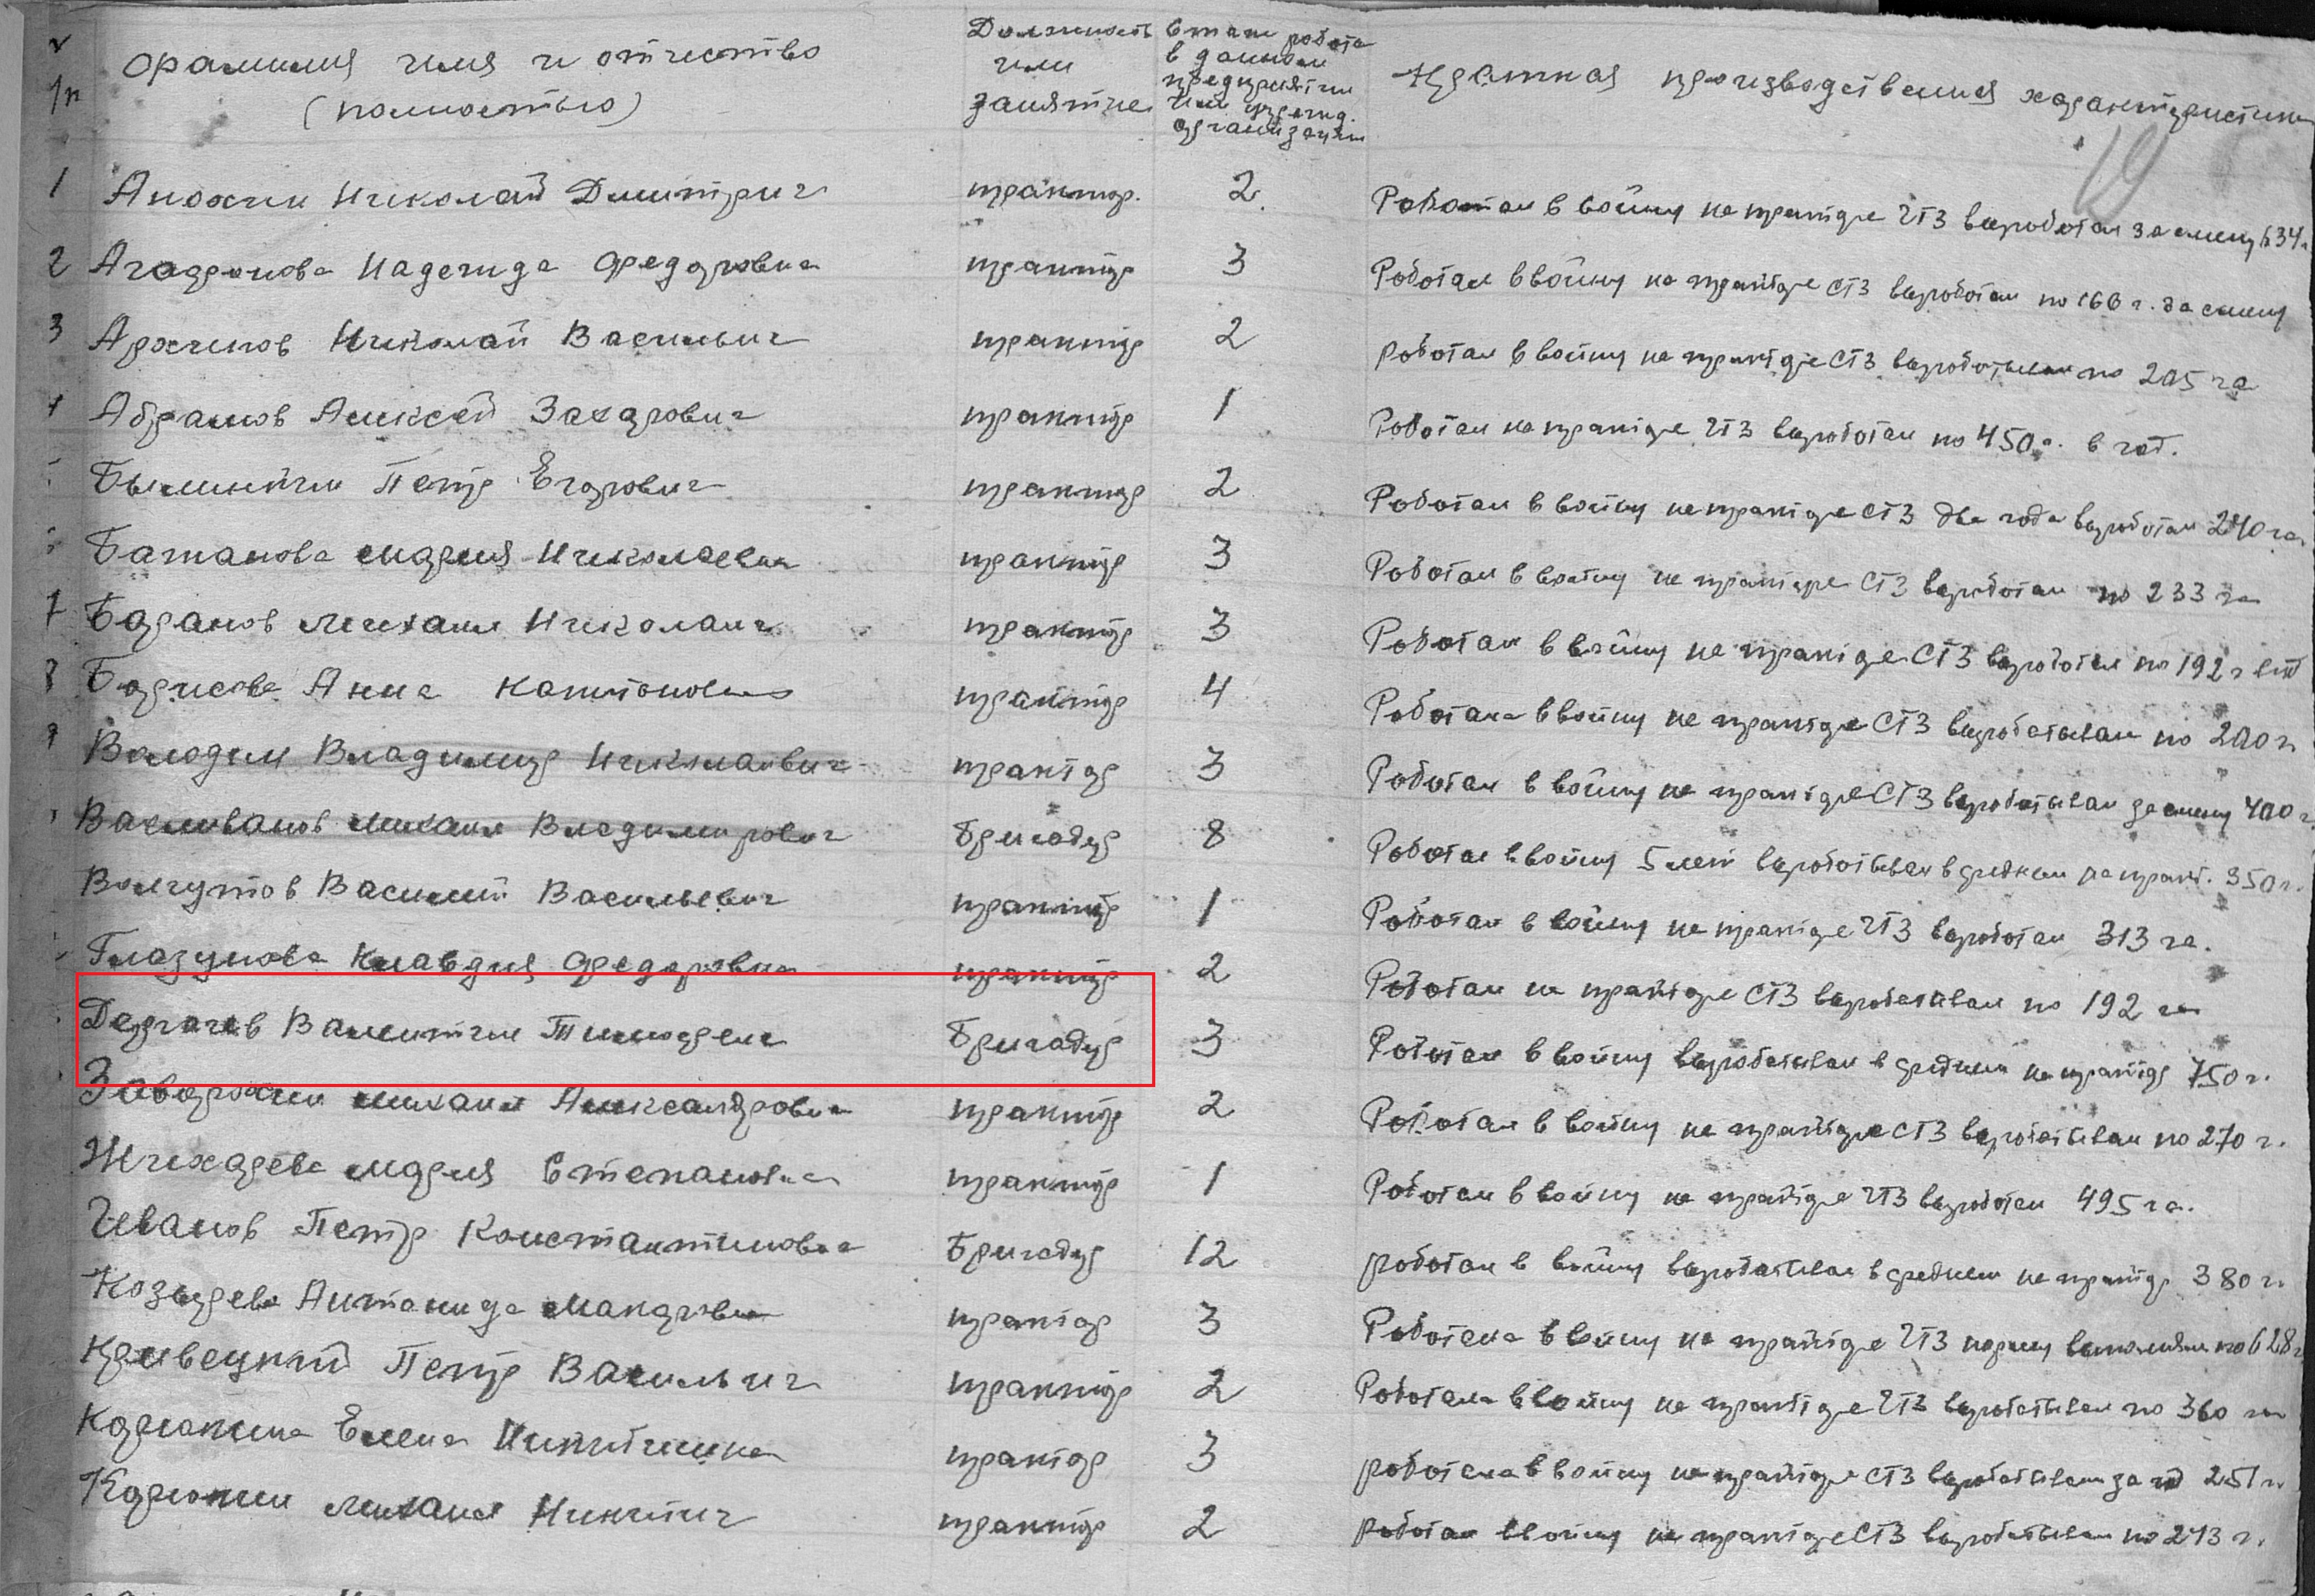 Фамилия имя и отчество (полностью) Должность или занятие Стаж работы в данном предприятии или учрежд. организации Краткая производственная характеристика
19
1 Анохин Николай Дмитрич трактор. 2. Работал в войну на тракторе ЧТЗ выработал за смену 634
2 Агафонова Надежда Федоровна трактор 3 Работал в войну на тракторе СТЗ выработал по 166 г. за смену
3 Архипов Николай Василич трактор 2 работал в войну на тракторе СТЗ вырабатывал по 205 га
4 Абрамов Алексей Захарович трактор 1 Работал на тракторе ЧТЗ выработал по 450 г. в год.
Петр Егорович трактор 2 Работал в войну на тракторе СТЗ два года выработал 240 га.
Батанова Мария Николаевна трактор 3 Работал в войну на тракторе СТЗ выработал по 233 га
7 Баранов Михаил Николаич трактор 3 Работал в войну на тракторе СТЗ выработал по 192 г
8 Борисова Анна Капитоновна трактор 4 Работала в войну на тракторе СТЗ вырабатывал по 200 г.
9 Володин Владимир Николаевич трактор 3 Работал в войну на тракторе СТЗ вырабатывал за смену 400 г.
Михаил Владимирович Бригадир 8 Работал в войну 5 лет вырабатывал в среднем на тракт. 350 г.
Василий Васильевич трактор 1 Работал в войну на тракторе ЧТЗ выработал 313 га.
Глазунова Клавдия Федоровна трактор 2 Работал на тракторе СТЗ вырабатывал по 192 га
Дергачев Валентин Тимофеич Бригадир 3 Работал в войну вырабатывал в среднем на трактор 750 г.
Заворохин Михаил Александрович трактор 2 Работал в войну на тракторе СТЗ вырабатывал по 270 г.
Жихарева Мария Степановна трактор 1 Работал в войну на тракторе ЧТЗ выработал 495 га.
Иванов Петр Константинович Бригадир 12 работал в войну вырабатывал в среднем на трактор 380 г.
Козырева Антанида Макаровна трактор 3 Работала в войну на тракторе ЧТЗ норму выполняла по 628 г
Кривецкий Петр Василич трактор 2 Работала в войну на тракторе ЧТЗ вырабатывал по 360 га
Корюкина Елена Никитична трактор 3 работала в войну на тракторе СТЗ вырабатывал за год 251 г.
Корюкин Михаил Никитич трактор 2 работал в войну на тракторе СТЗ вырабатывал по 243 г.